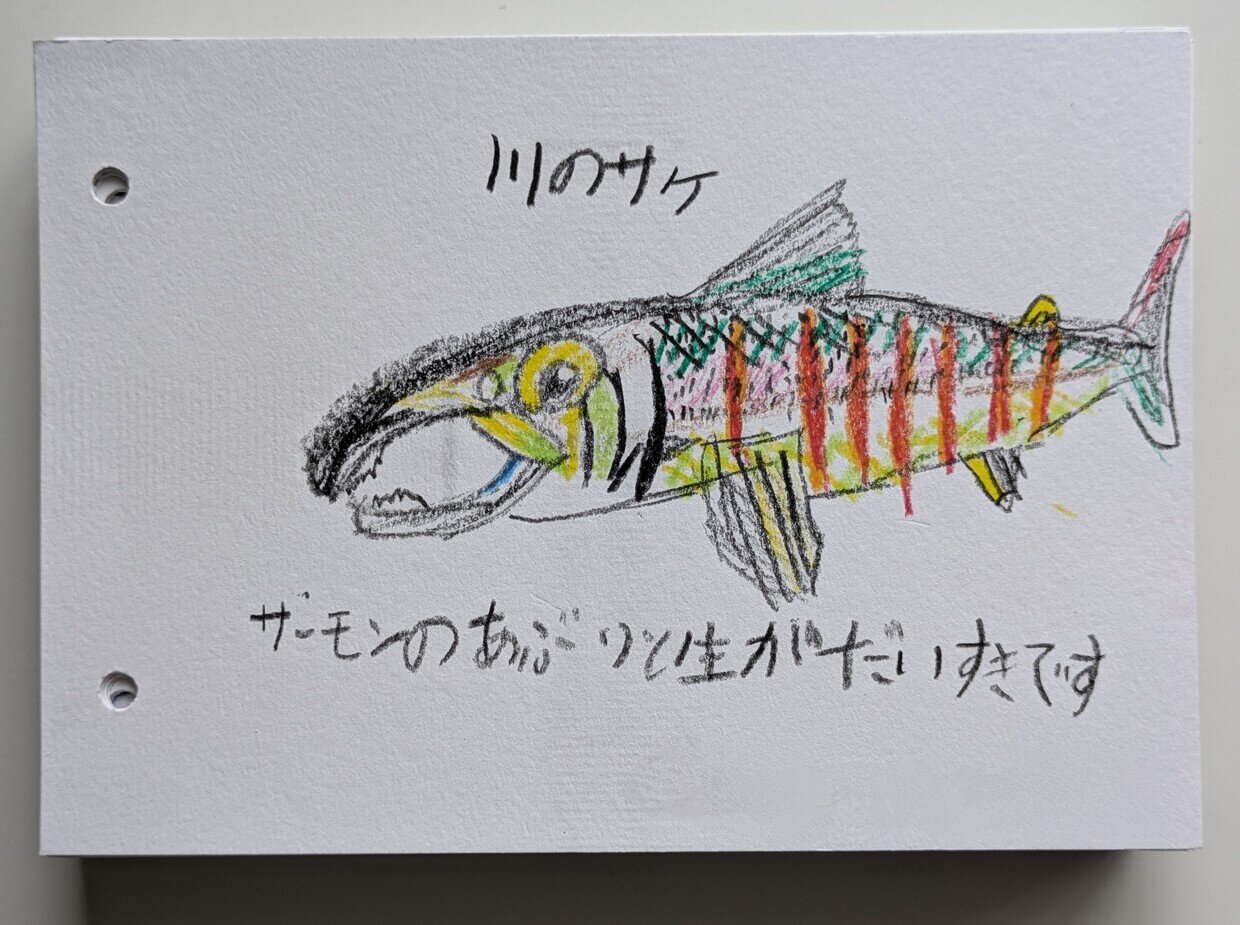 川のサケ
サーモンのあぶりと生がだいすきです